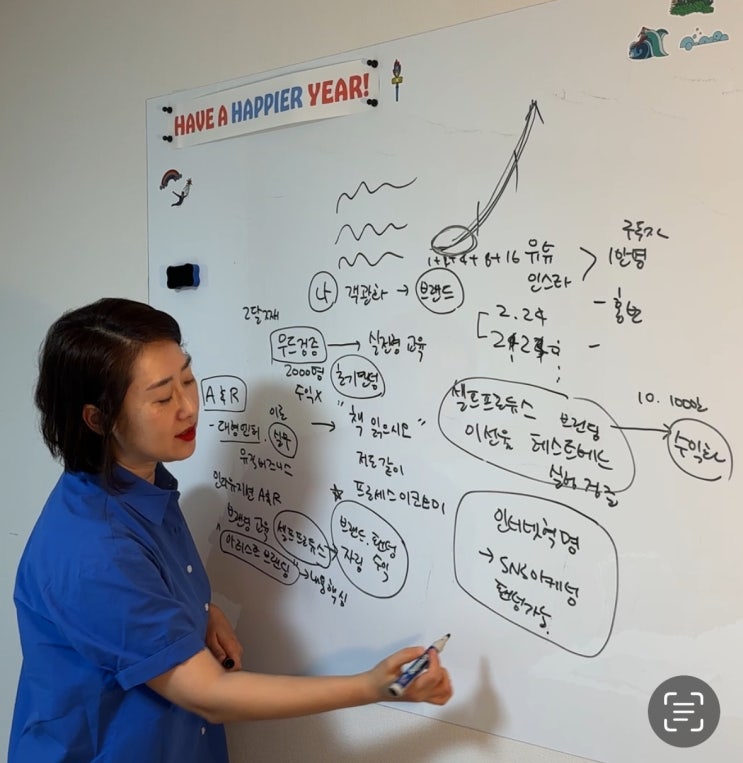 HAVE A HAPPIER YEAR!
구독자
1만명
1+2+4+8+16
유튜
인스타
나 객관화 → 브랜드
- 홍보
2.24
2달째
→ 실전형 교육
2000명
수익X
초기팬덤
A&R
이론
- 대형기획 · 실무
음악비즈니스
→ "책 읽으시오"
저도같이
프로세스 이코노미
인디뮤지션 A&R
브랜딩 교육
셀프프로듀스
아티스트 브랜딩
→ 내용핵심
브랜드, 팬덤
자립 수익
셀프프로듀스 브랜딩
이선율 테스트베드
실험 검증
10. 100만
→ 수익화
인터넷혁명
→ SNS마케팅
팬덤가능.